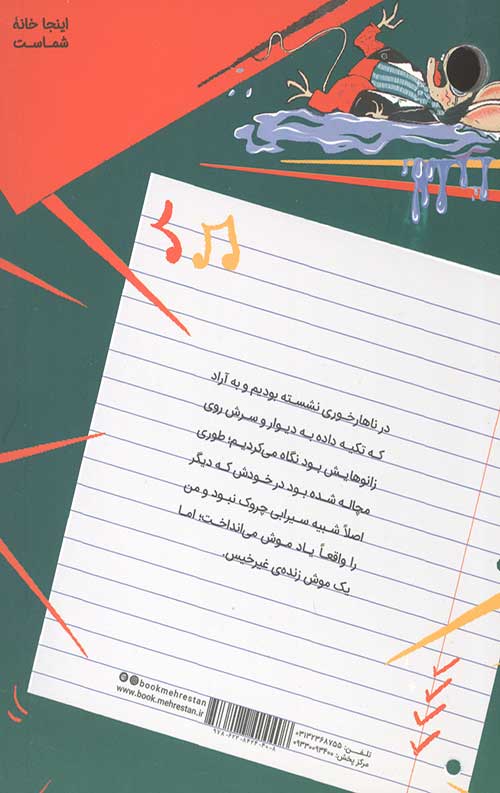 اینجا خانهٔ
شماست
در ناهارخوری نشسته بودیم و به آراد
که تکیه داده به دیوار و سرش روی
زانوهایش بود نگاه می‌کردیم؛ طوری
مچاله شده بود در خودش که دیگر
اصلاً شبیه سیرابی چروک نبود و من
را واقعاً یاد موش می‌انداخت؛ اما
یک موش زنده‌ی غیرخیس.
bookmehrestan
www.book.mehrestan.ir
تلفن: ۰۳۱۳۲۳۶۸۷۵۵
مرکز پخش: ۰۹۳۳۰۰۹۳۴۰۰